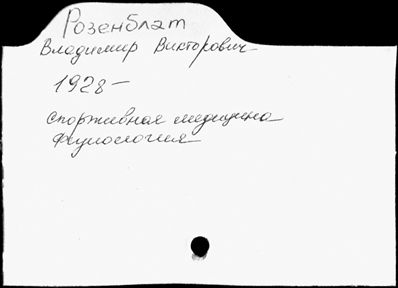 Розенблат
Владимир Викторович
1928 –
спортивная медицина
физиология